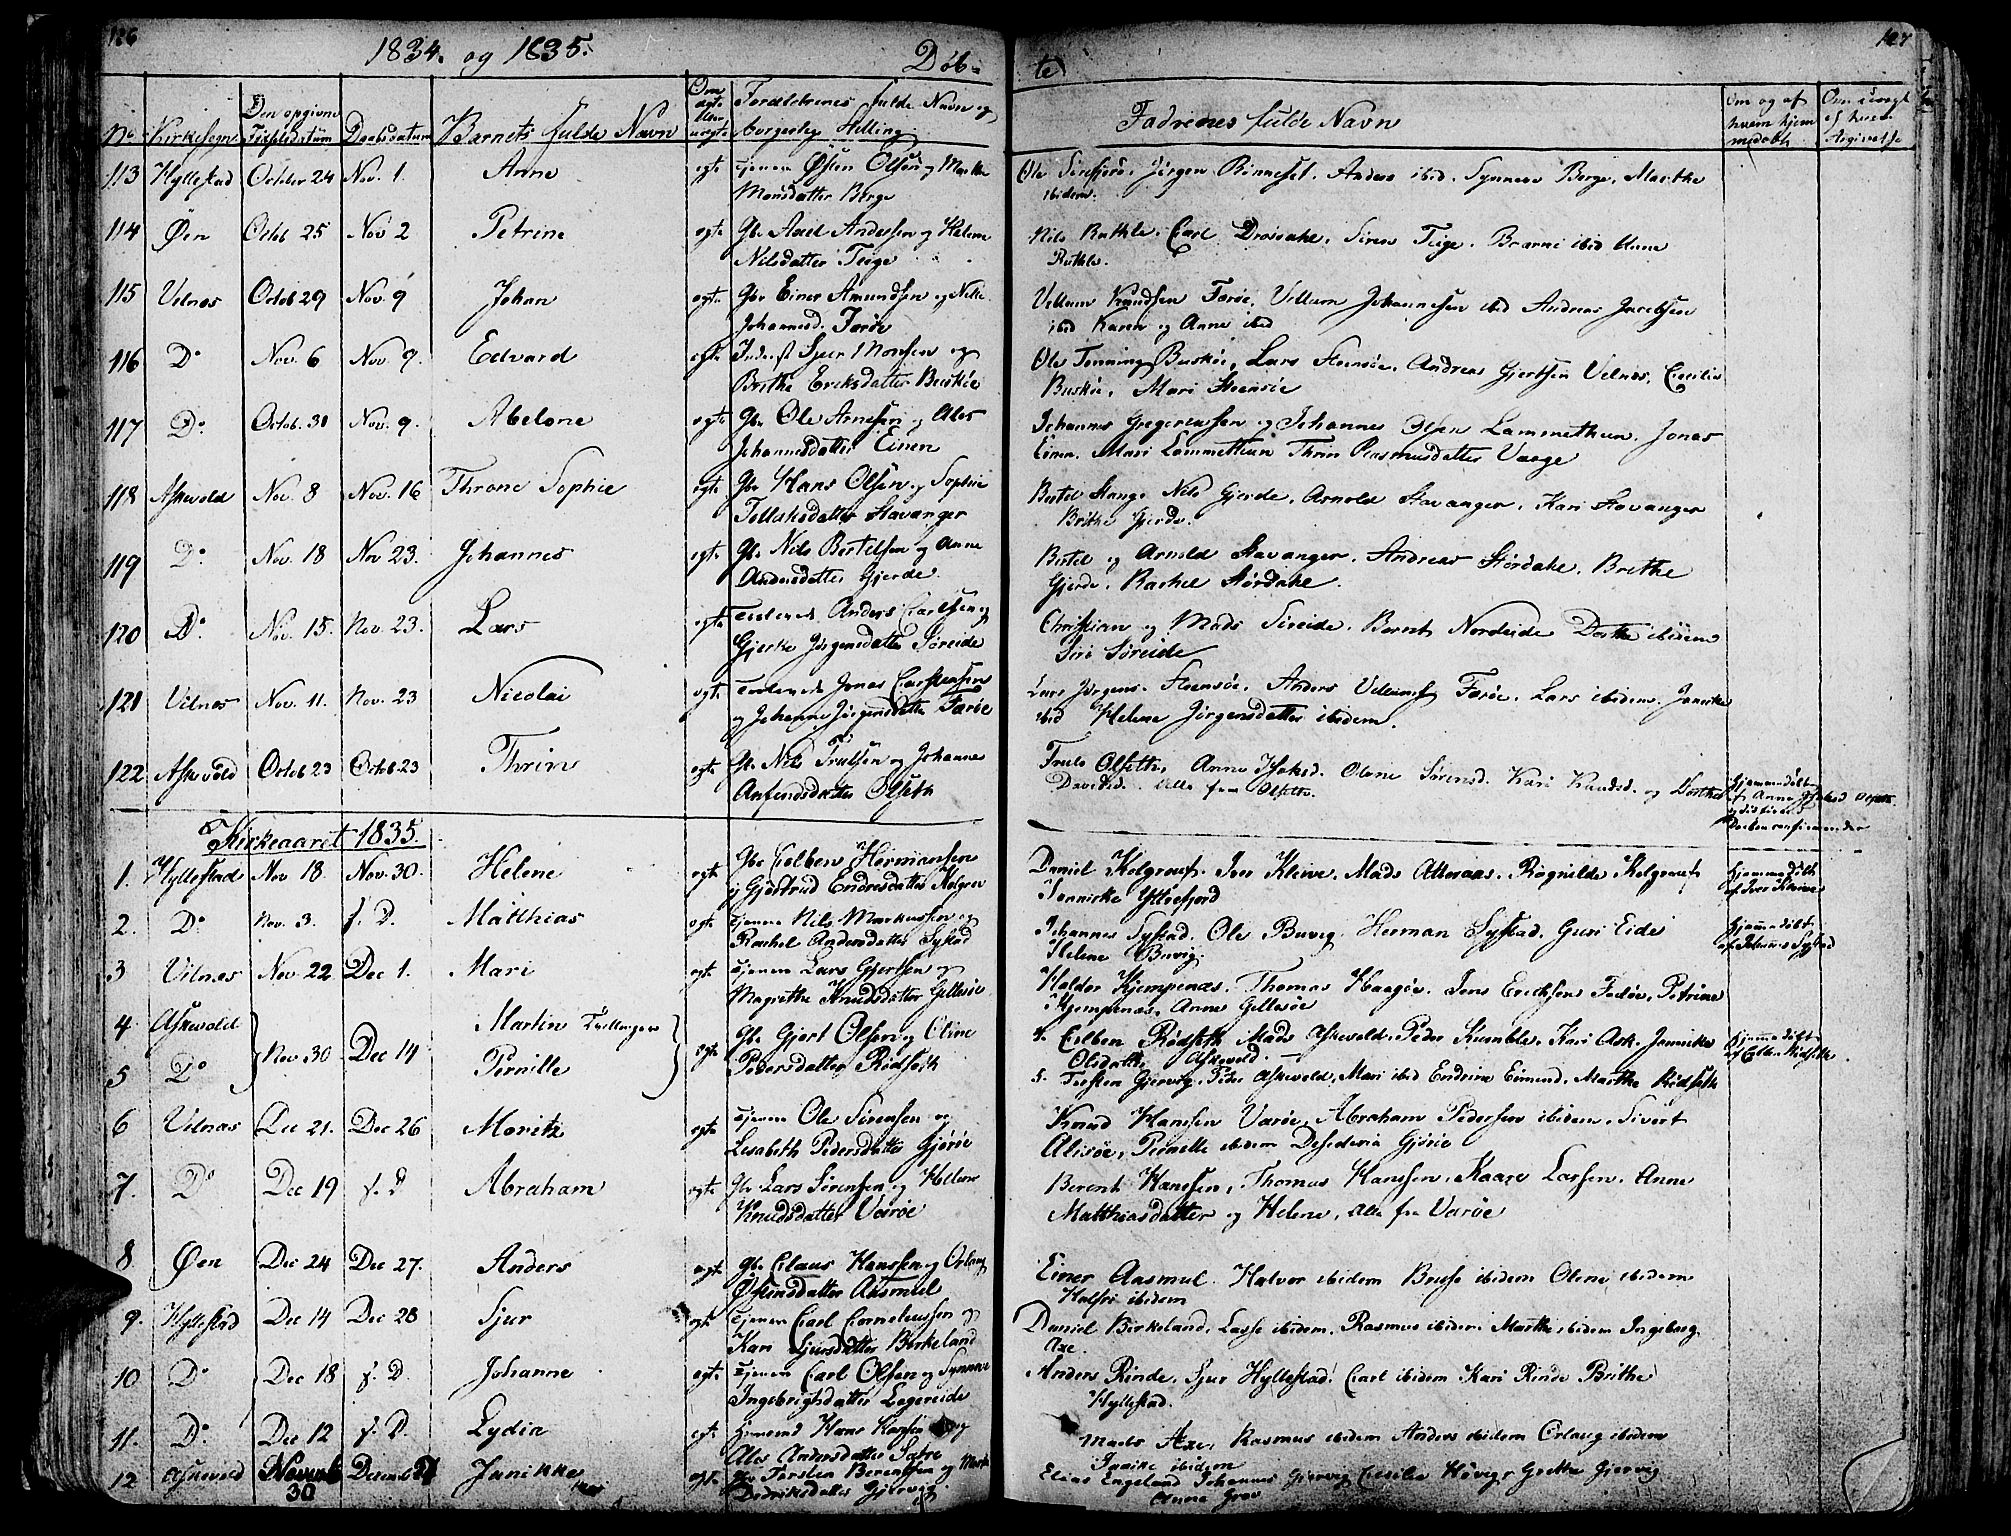 126
1834. og 1835.
Døb=
te
127
No Kirkesogn Den opgivne Fødselsdatum Daabsdatum Barnets fulde Navn Om ægte eller uægte Forældrenes fulde Navn og borgerlige Stilling
Fadrenes fulde Navn
Om og af hvem hjemmedøbt
113 Hyllestad October 24 Nov. 1. Anne ægte Østen Olsen og Marthe
Monsdatter Berge
Jørgen Rinneset. Anders ibid. Synneve Berge, Marthe
ibidem.
114 Øen Octob 25 Nov 2 Petrine ægte Gbr. Axel Andersen og Helene
Nilsdatter Teige
Nils Ruthle. Carl Drøsdahl. Siren Teige. ibid Anne
Ruthle.
115 Vilnæs Octob 29 Nov. 9 Johan ægte Gbr Einer Amundsen og Nille
Johannesd. Færøe
Villum Knudsen Færøe, Villum Johannesen ibid Andreas Jacobsen
ibid Karen og Anne ibid
116 Do Nov. 6 Nov. 9. Edvard ægte Inderst Sjur Monsen og
Brithe Eriksdatter Buskøe
Ole Buskøe, Lars Steensøe. Andreas Gjertsen Vilnæs, Cecilie
Buskøe, Mari Steensøe
117 Do. Octob. 31 Nov. 9. Abelone ægte Gbr Ole Arnesen og Ales
Johannesdatter Einen
Johannes Gregeriussen og Johannes Olsen Lammethun. Jonas
Einen. Mari Lammethun Thrin Rasmusdatter Vaage
118 Askevold Nov. 8 Nov. 16 Throne Sophie ægte Gbr Hans Olsen og Sophie
Tollaksdatter Stavanger
Bertel Stang. Nils Gjerde. Arnold Stavanger. Kari Stavanger
Brithe Gjerde.
119 Do. Nov. 18 Nov 23. Johannes ægte Gbr Nils Bertelsen og Anne
Andersdatter Gjerde.
Bertel og Arnold Stavanger. Andreas Stordahl. Brithe
Gjerde. Rachel Stordahl.
120 Do. Nov. 15. Nov. 23. Lars ægte Anders Carlsen og
Gjerthe Jørgensdatter Søreide
Christian og Mads Sireide. Bernt Nordeide Dorthe ibidem
Siri Søreide
121 Vilnæs Nov. 11. Nov. 23 Nicolai ægte Jonas Carstensen
og Johanne Jørgensdatter Færøe
Lars Jørgens. Steensøe. Anders Villums Færøe. Lars ibidem. Jannike
ibid Helene Jørgensdatter ibidem.
122 Askevold Octob 23 Octob. 23 Thrine ægte Gbr Nils Trulsen og Johanne
Anfindsdatter Olseth
Truls Olseth. Anne Isaksd. Olene Sørensd. Kari Knudsd. og Dorthe
Davidsd. Alle fra Olseth.
Hjemmedøbt
af Anne Isaksd Olseth
Kirkeaaret 1835.
1. Hyllestad Nov 18. Nov. 30. Helene ægte Gbr Eilben Hermansen
og Gjørtrud Endresdatter Kolgrov
Daniel Kolgrov. Iver Kleive. Mads Atteraas. Ragnilde Kolgrov
Jannicke Yttrefjord
Hjemmedøbt
af Iver Kleive
2. Do Nov. 3. f. D. Matthias ægte Nils Markussen og
Rachel Andersdatter Systad
Johannes Systad. Ole Buvig. Herman Systad. Guri Eide
Helene Buvig.
Hjemmedøbt
af Johannes Systad
3 Vilnæs Nov. 22 Dec 1. Mari ægte Lars Gjertsen og
Magrethe Knudsdatter Gillesøe
Haldor Kjempenæs. Thomas Haagøe. Jens Ericksen Fedøe. Petrine
Kjempenæs. Anne Gillesøe
4. Askevold Nov 30 Dec 14 Martin Tvillinger ægte Gbr Gjert Olsen og Oline
5 Do Pernille Pedersdatter Rødseth
4. Eilben Rødseth Mads Askevold. Peder Kumble. Kari Ask. Jannicke
Olsdatter Askevold. —
5. Torsten Gjervig. Peder Askevold, Mari ibid Endrine Eimund. Marthe Rødseth
Hjemmedøbt
af Eilb. Rødseth
6 Vilnæs Dec 21. Dec 26 Moritz ægte Ole Sørensen og
Lisabeth Pedersdatter Gjørøe
Knud Hansen Varøe. Abraham Pedersen ibidem. Sivert
Alisøe, Pernelle ibidem Desideria Gjørøe
7. Do Dec 19 f. D Abraham ægte Gbr Lars Sørensen og Helene
Knudsdatter Varøe
Berent Hansen, Thomas Hansen, Kaare Larsen. Anne
Matthiasdatter og Helene, alle fra Varøe
8 Øen Dec 24 Dec 27. Anders ægte Gbr. Claus Hansen og Orlaug
Østensdatter Aasmul
Einer Aasmul. Halvor ibidem Brusse ibidem Olene ibidem
ibidem
9. Hyllestad Dec 14 Dec 28 Sjur ægte Carl Corneliussen og
Kari Sjursdatter Birkeland
Daniel Birkeland, Lasse ibidem. Rasmus ibidem Marthe ibidem Ingeborg
Axe.
10 Do Dec 18 f. D. Johanne ægte Carl Olsen og Synneve
Ingebrigtsdatter Legereide
Anders Rinde, Sjur Hyllestad. Carl ibidem Kari Rinde Brithe
Hyllestad.
11. Do. Dec 12 f. D. Lydia ægte Hans Hansen og
Ales Andersdatter
Mads Axe, Rasmus ibidem Anders ibidem Orlaug ibidem
ibidem
12 Askevold Novemb 30 Decemb Janikke ægte Gbr Torsten Berentsen og
Dedriksdatter Gjervig
Elias Engeland Johannes Gjervig Cecilie Grethe Gjervig
Anne Grov